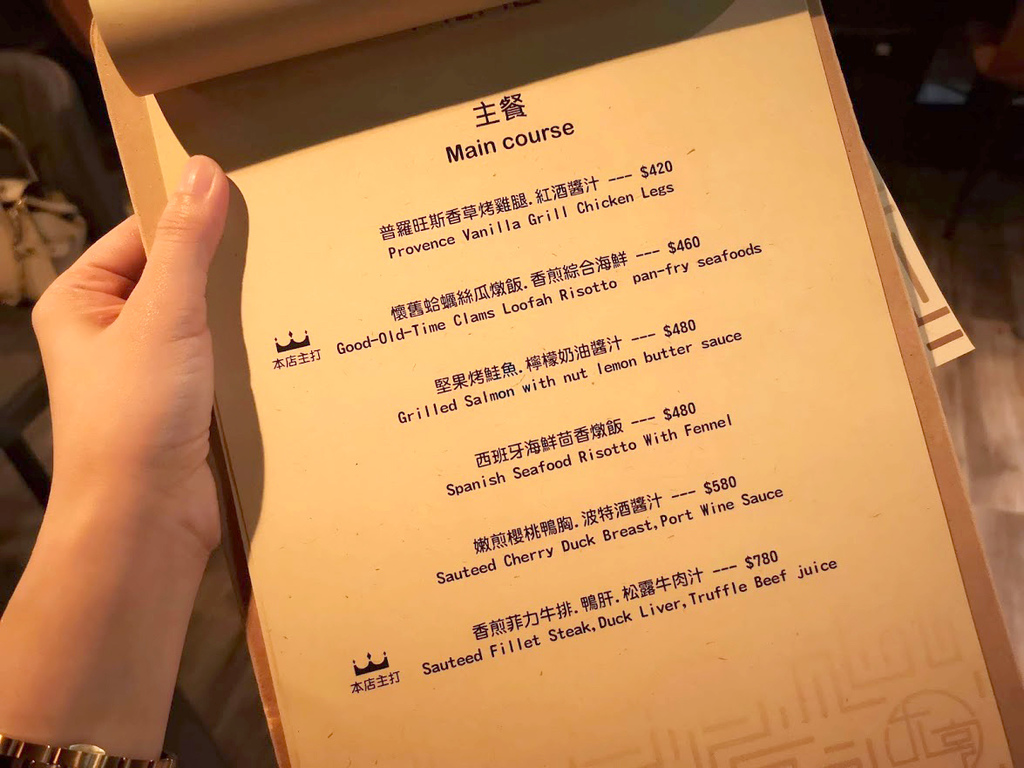 主餐
Main course
普羅旺斯香草烤雞腿.紅酒醬汁 --- $420
Provence Vanilla Grill Chicken Legs
懷舊蛤蠣絲瓜燉飯.香煎綜合海鮮 --- $460
Good-Old-Time Clams Loofah Risotto pan-fry seafoods
本店主打
堅果烤鮭魚.檸檬奶油醬汁 --- $480
Grilled Salmon with nut lemon butter sauce
西班牙海鮮茴香燉飯 --- $480
Spanish Seafood Risotto With Fennel
嫩煎櫻桃鴨胸.波特酒醬汁 --- $580
Sauteed Cherry Duck Breast,Port Wine Sauce
香煎菲力牛排.鴨肝.松露牛肉汁 --- $780
Sauteed Fillet Steak,Duck Liver,Truffle Beef juice
本店主打